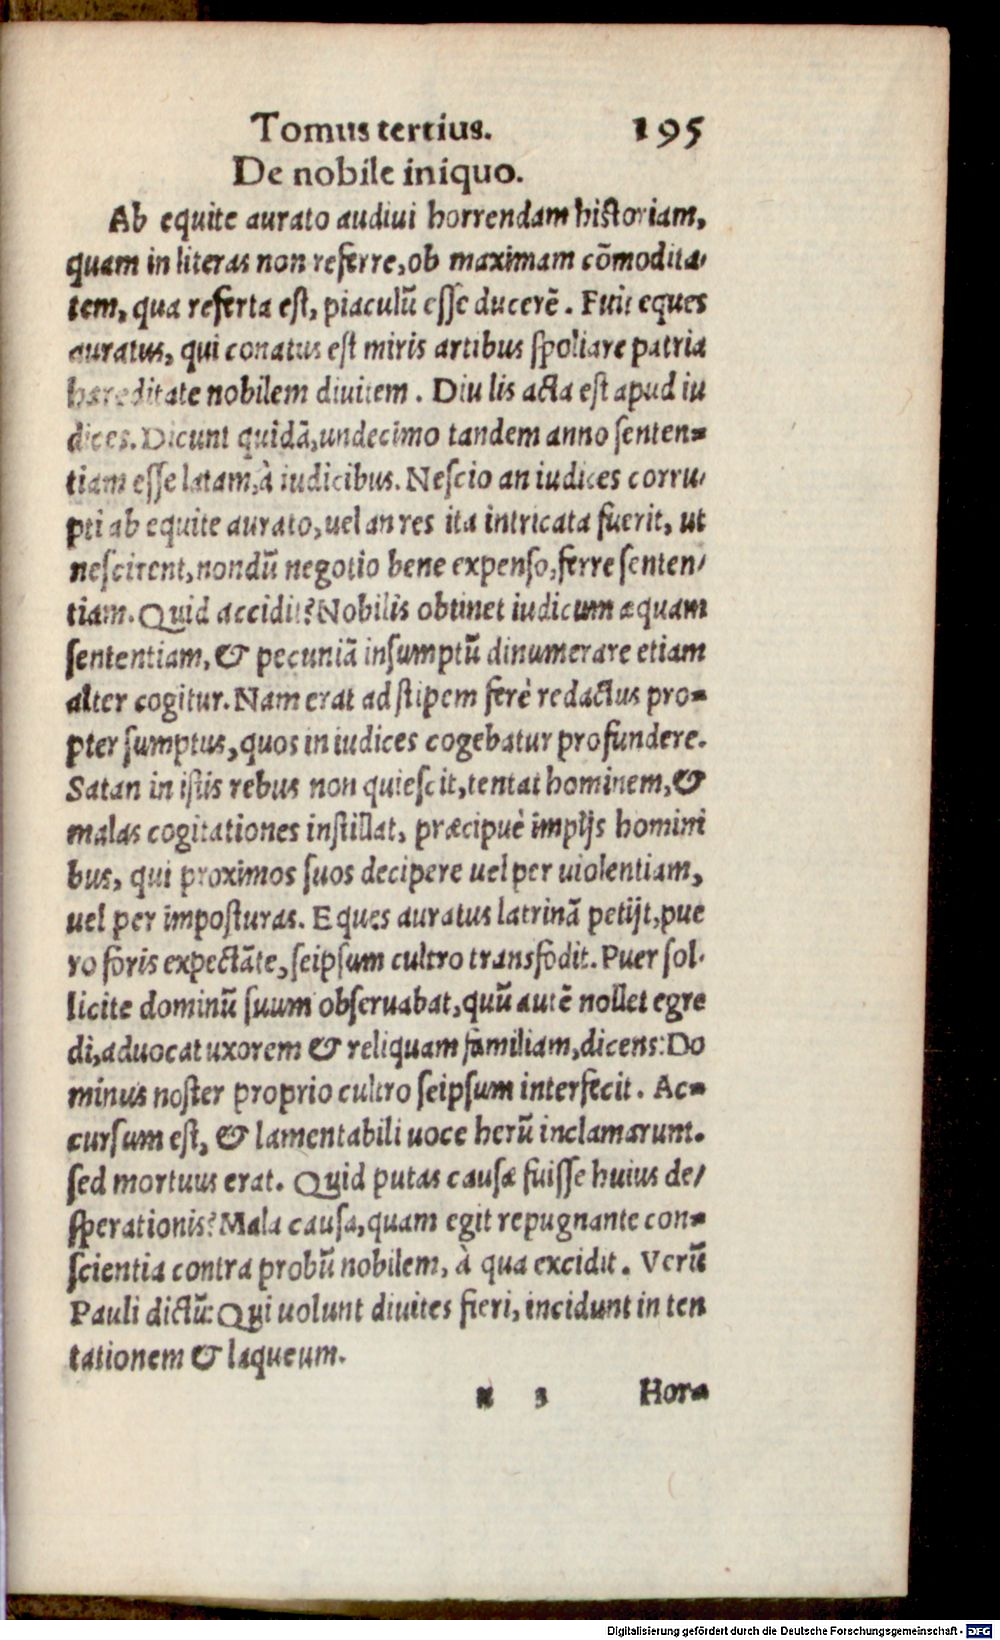 Tomus tertius. 195
De nobile iniquo.
Ab equite aurato audiui horrendam historiam,
quam in literas non referre, ob maximam cōmodita-
tem, qua referta est, piaculū esse ducerē. Fuit eques
auratus, qui conatus est miris artibus spoliare patria
hæreditate nobilem diuitem. Diu lis acta est apud iu
dices. Dicunt quidā, undecimo tandem anno senten-
tiam esse latam, à iudicibus. Nescio an iudices corru-
pti ab equite aurato, uel an res ita intricata fuerit, ut
nescirent, nondū negotio bene expenso, ferre senten-
tiam. Quid accidit? Nobilis obtinet iudicum æquam
sententiam, & pecuniā insumptū dinumerare etiam
alter cogitur. Nam erat ad stipem ferè redactus pro-
pter sumptus, quos in iudices cogebatur profundere.
Satan in istis rebus non quiescit, tentat hominem, &
malas cogitationes instillat, præcipuè impijs homini
bus, qui proximos suos decipere uel per uiolentiam,
uel per imposturas. Eques auratus latrinā petijt, pue
ro foris expectāte, seipsum cultro transfodit. Puer sol-
licite dominū suum obseruabat, quū autē nollet egre
di, aduocat uxorem & reliquam familiam, dicens: Do
minus noster proprio cultro seipsum interfecit. Ac-
cursum est, & lamentabili uoce herū inclamarunt.
sed mortuus erat. Quid putas causæ fuisse huius de-
sperationis? Mala causa, quam egit repugnante con-
scientia contra probū nobilem, à qua excidit. Verū
Pauli dictū: Qui uolunt diuites fieri, incidunt in ten
tationem & laqueum.
3 Hor-
Digitalisierung gefördert durch die Deutsche Forschungsgemeinschaft - DFG